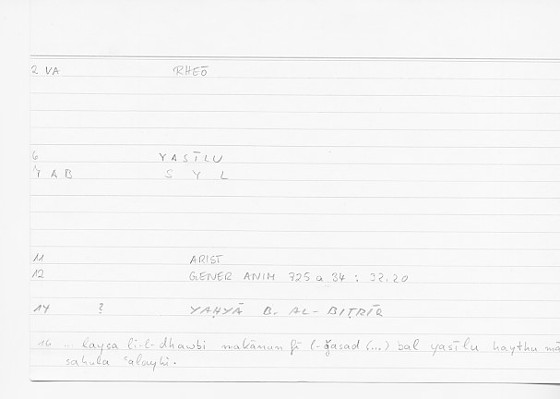 2 VA RHEŌ
6 YASĪLU
7 AB S Y L
11 ARIST
12 GENER ANIM 725 a 34 : 32.20
14 ? YAḤYĀ B. AL-BIṬRĪQ
16 ... laysa li-l-dhawbi makānun fī l-ǧasad (...) bal yasīlu haythu mā
sahula ʿalayhi.